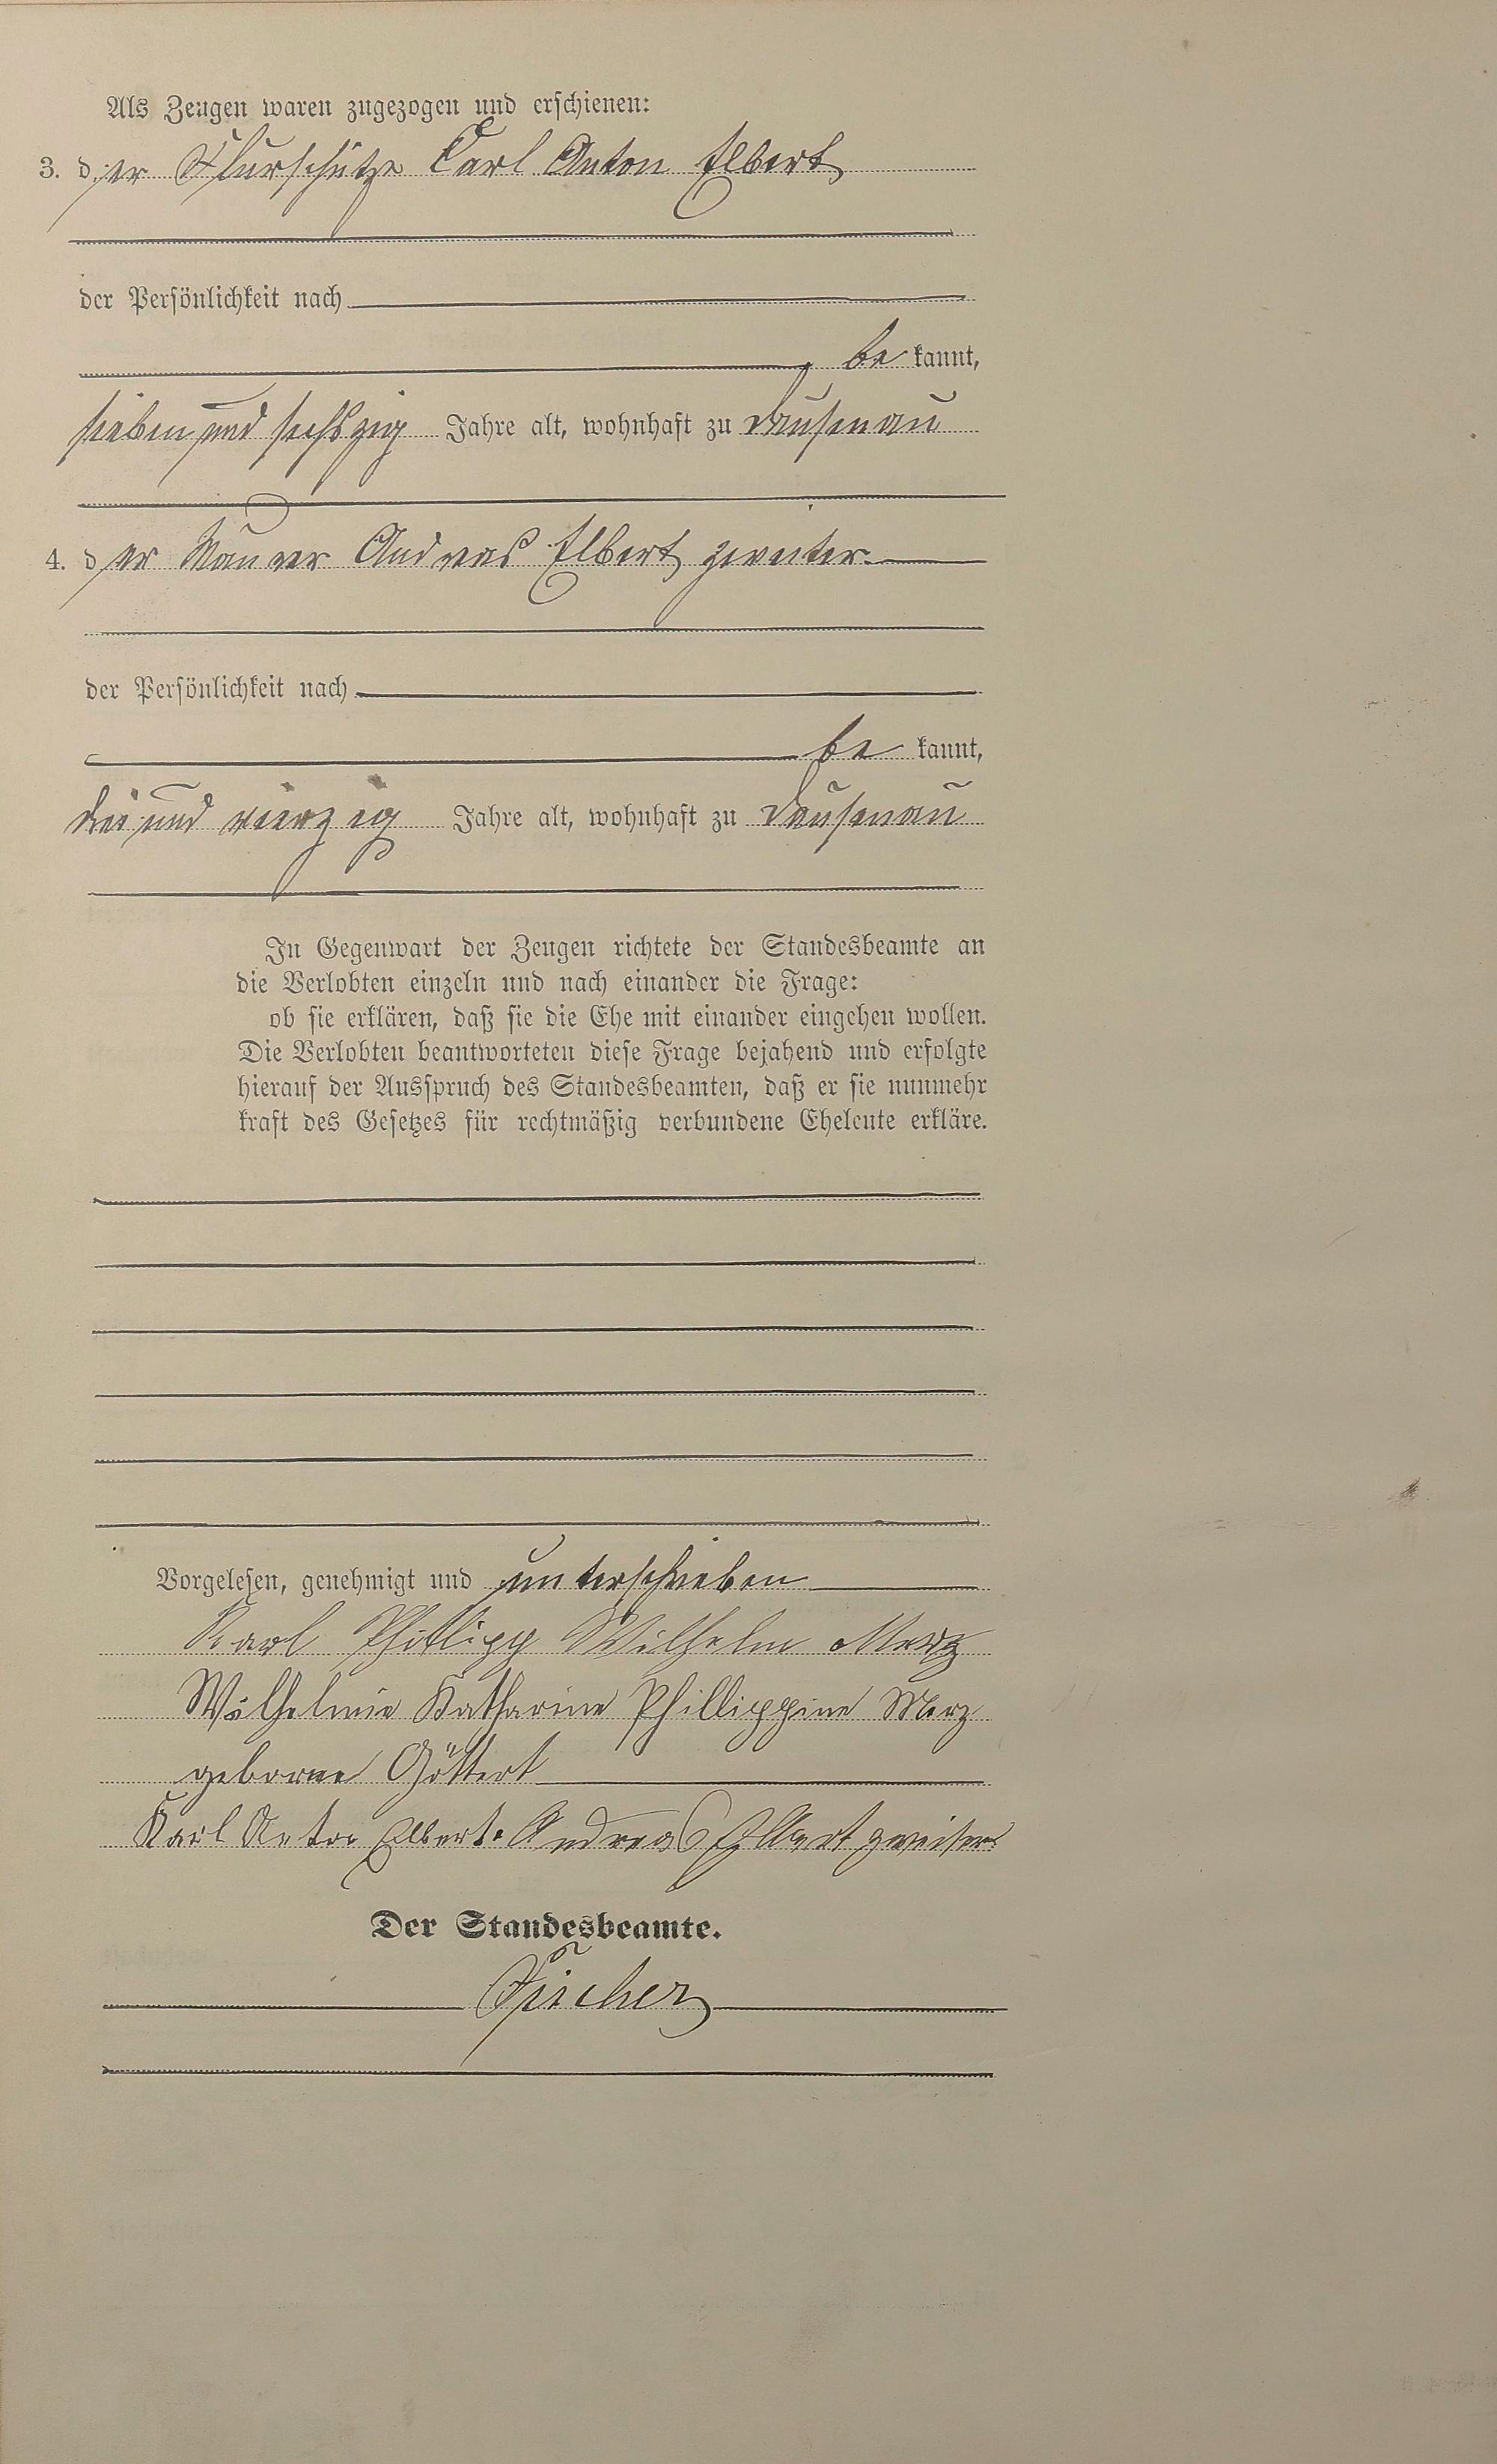 Als Zeugen waren zugezogen und erschienen:
3. der Flurschütze Carl Anton Elbert
der Persönlichkeit nach
bekannt,
sieben und sechszig Jahre alt, wohnhaft zu Dausenau
4. der Maurer Andreas Elbert zweiter
der Persönlichkeit nach
bekannt,
drei und vierzig Jahre alt, wohnhaft zu Dausenau
In Gegenwart der Zeugen richtete der Standesbeamte an
die Verlobten einzeln und nach einander die Frage:
ob sie erklären, daß sie die Ehe mit einander eingehen wollen.
Die Verlobten beantworteten diese Frage bejahend und erfolgte
hierauf der Ausspruch des Standesbeamten, daß er sie nunmehr
kraft des Gesetzes für rechtmäßig verbundene Eheleute erkläre.
Vorgelesen, genehmigt und unterschrieben
Karl Phillipp Wilhelm Merz
Wilhelmine Katharine Phillippine Merz
geborne Göttert
Karl Anton Elbert. Andreas Elbert zweiter
Der Standesbeamte.
Fischer